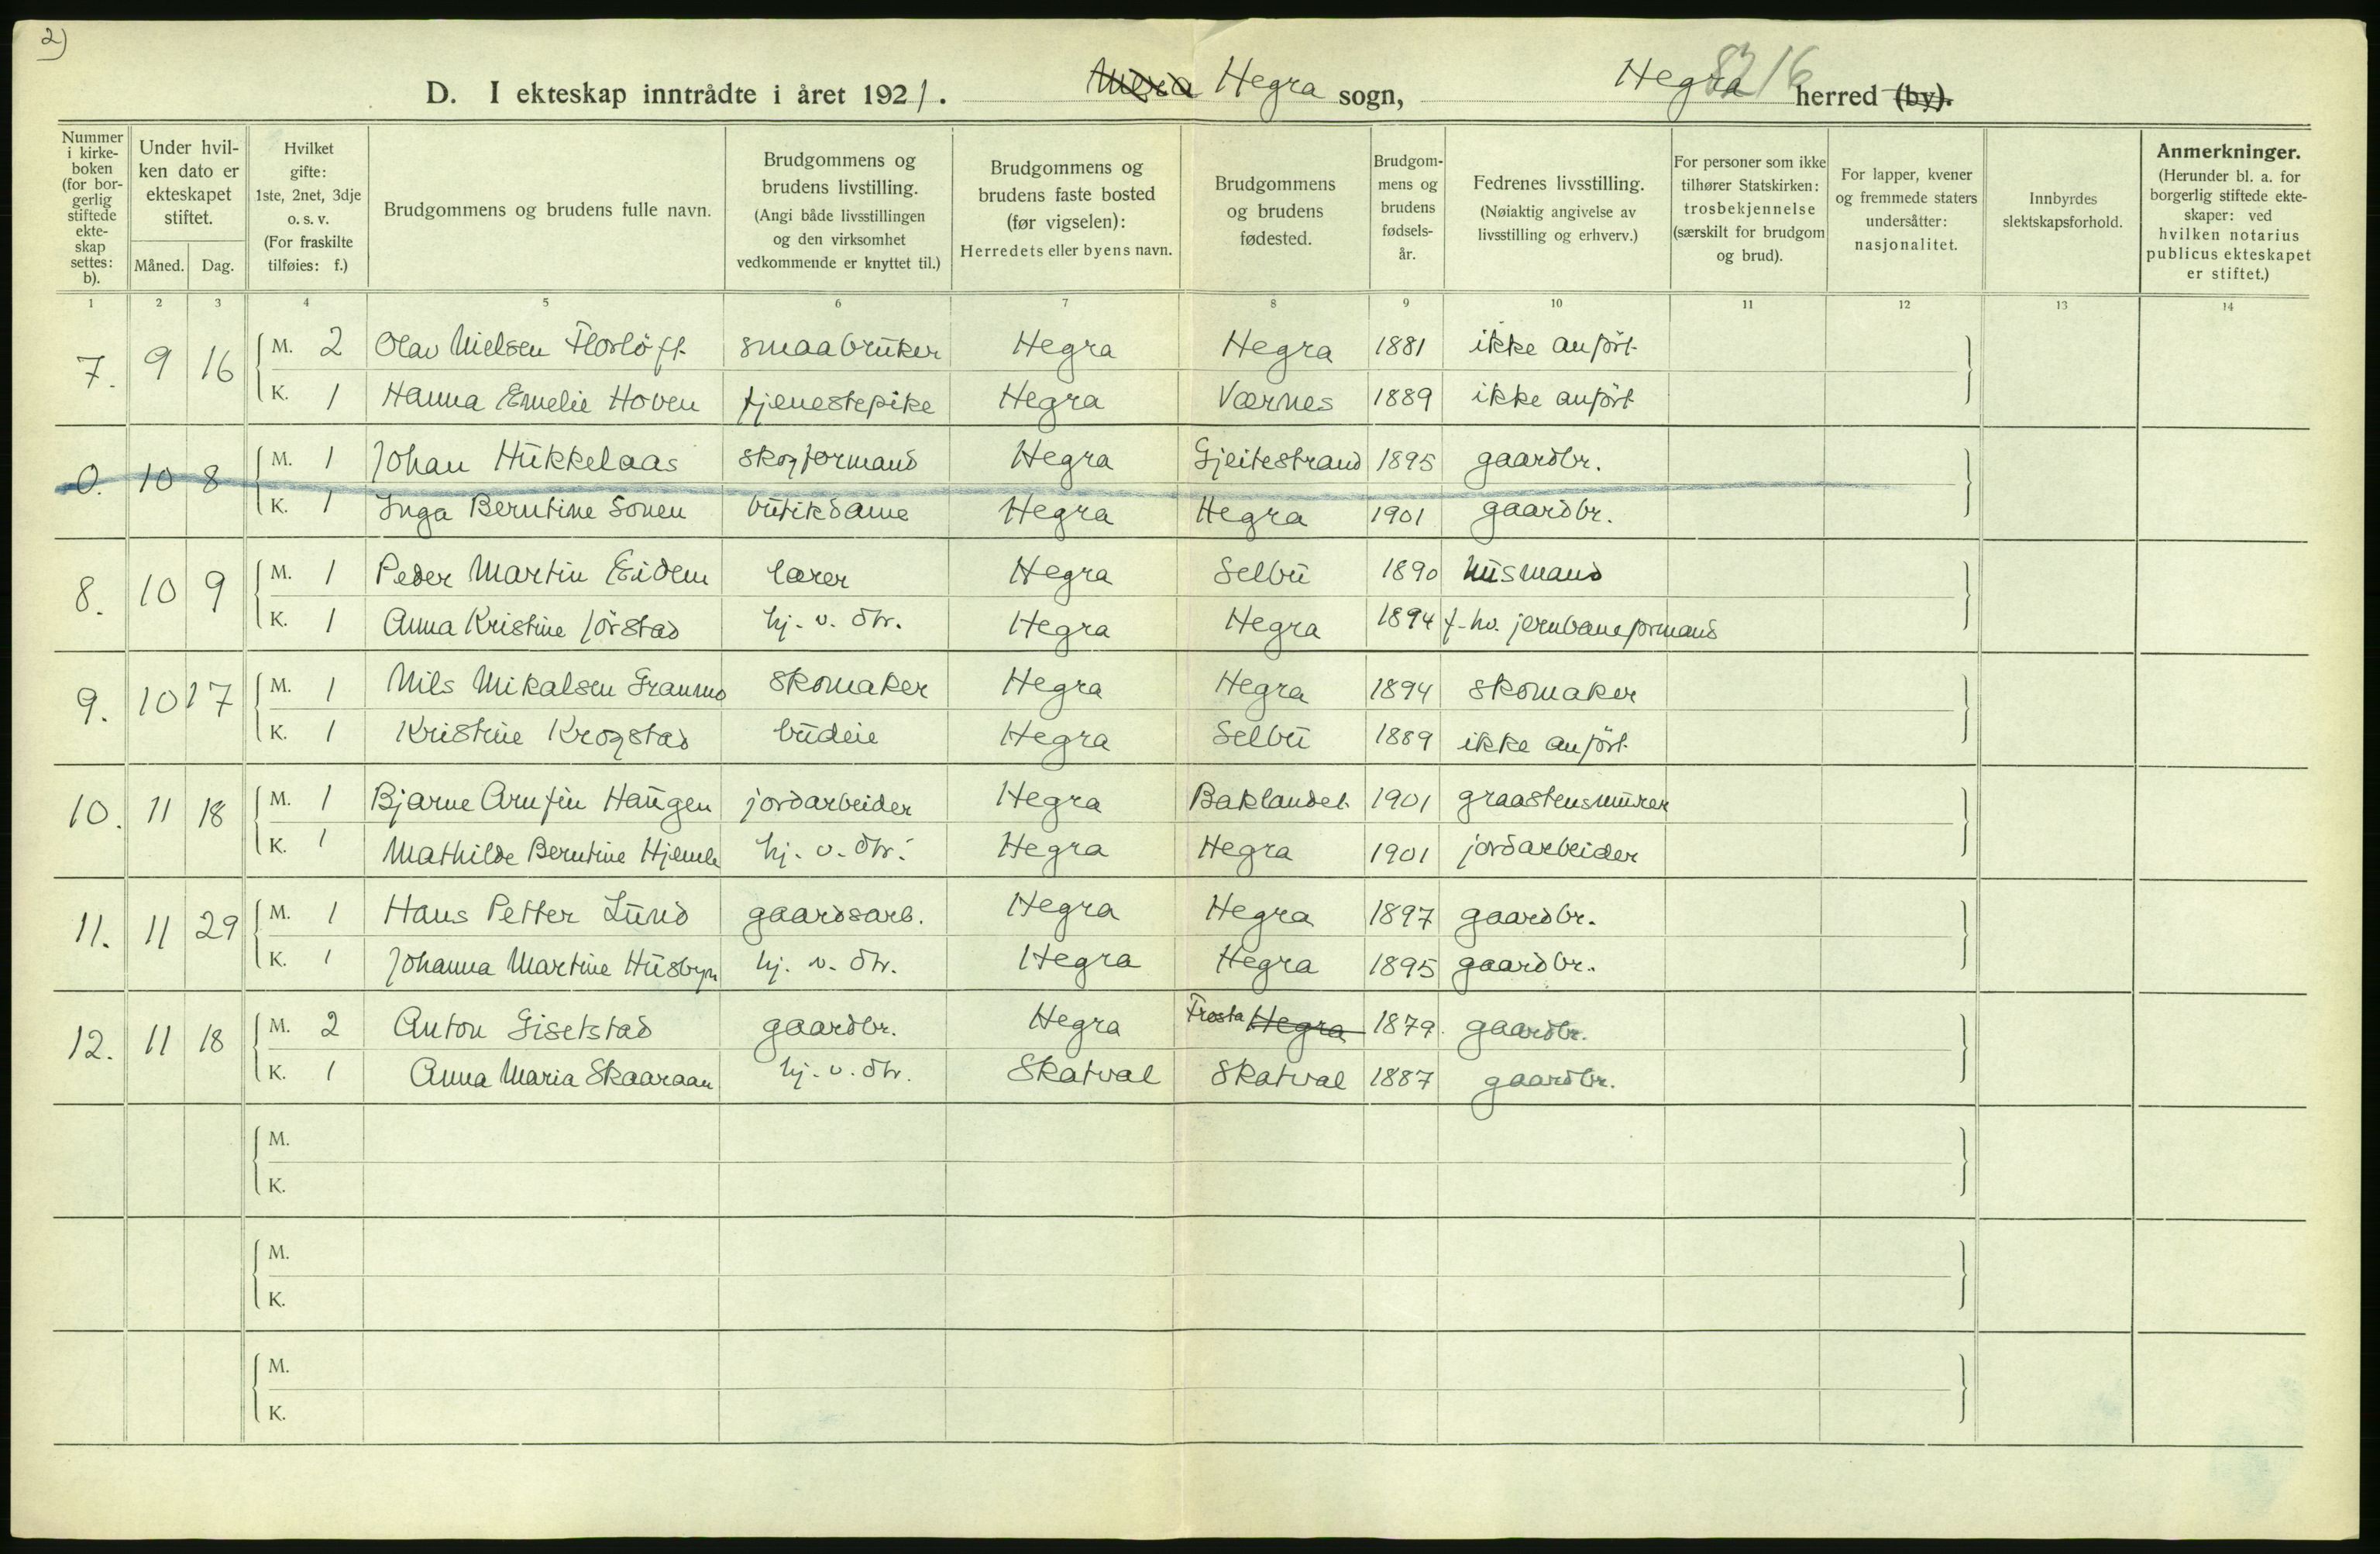 2)
D. I ekteskap inntrådte i året 1921. Hegra sogn, Hegra herred (by).
8216
Nummer i kirkeboken (for borgerlig stiftede ekteskap settes: b).
Under hvilken dato er ekteskapet stiftet.
Måned. Dag.
Hvilket gifte: 1ste, 2net, 3dje o. s. v. (For fraskilte tilføies: f.)
Brudgommens og brudens fulle navn.
Brudgommens og brudens livstilling. (Angi både livsstillingen og den virksomhet vedkommende er knyttet til.)
Brudgommens og brudens faste bosted (før vigselen): Herredets eller byens navn.
Brudgommens og brudens fødested.
Brudgommens og brudens fødselsår.
Fedrenes livsstilling. (Nøiaktig angivelse av livsstilling og erhverv.)
For personer som ikke tilhører Statskirken: trosbekjennelse (særskilt for brudgom og brud).
For lapper, kvener og fremmede staters undersåtter: nasjonalitet.
Innbyrdes slektskapsforhold.
Anmerkninger. (Herunder bl. a. for borgerlig stiftede ekteskaper: ved hvilken notarius publicus ekteskapet er stiftet.)
1 2 3 4 5 6 7 8 9 10 11 12 13 14
7. 9 16 M. 2 Olav Nielsen Florløft smaabruker Hegra Hegra 1881 ikke anført
K. 1 Hanna Emelie Hoven tjenestepike Hegra Værnes 1889 ikke anført
0. 10 8 M. 1 Johan Hukkelaas skogformand Hegra Gjeitestrand 1895 gaardbr.
K. 1 Inga Berntine Sonen butikdame Hegra Hegra 1901 gaardbr.
8. 10 9 M. 1 Peder Martin Eidem lærer Hegra Selbu 1890 husmand
K. 1 Anna Kristine Jørstad hj. v. dtr. Hegra Hegra 1894 f. hv. jernbaneformand
9. 10 17 M. 1 Nils Mikalsen Granmo skomaker Hegra Hegra 1894 skomaker
K. 1 Kristine Krogstad budeie Hegra Selbu 1889 ikke anført
10. 11 18 M. 1 Bjarne Arnfin Haugen jordarbeider Hegra Baklandet 1901 graastensmurer
K. 1 Mathilde Berntine Hjemle hj. v. dtr. Hegra Hegra 1901 jordarbeider
11. 11 29 M. 1 Hans Petter Lund gaardsarb. Hegra Hegra 1897 gaardbr.
K. 1 Johanna Martine Husbyn hj. v. dtr. Hegra Hegra 1895 gaardbr.
12. 11 18 M. 2 Anton Gisetstad gaardbr. Hegra Frosta Hegra 1879. gaardbr.
K. 1 Anna Maria Skaaraan hj. v. dtr. Skatval Skatval 1887 gaardbr.
M.
K.
M.
K.
M.
K.